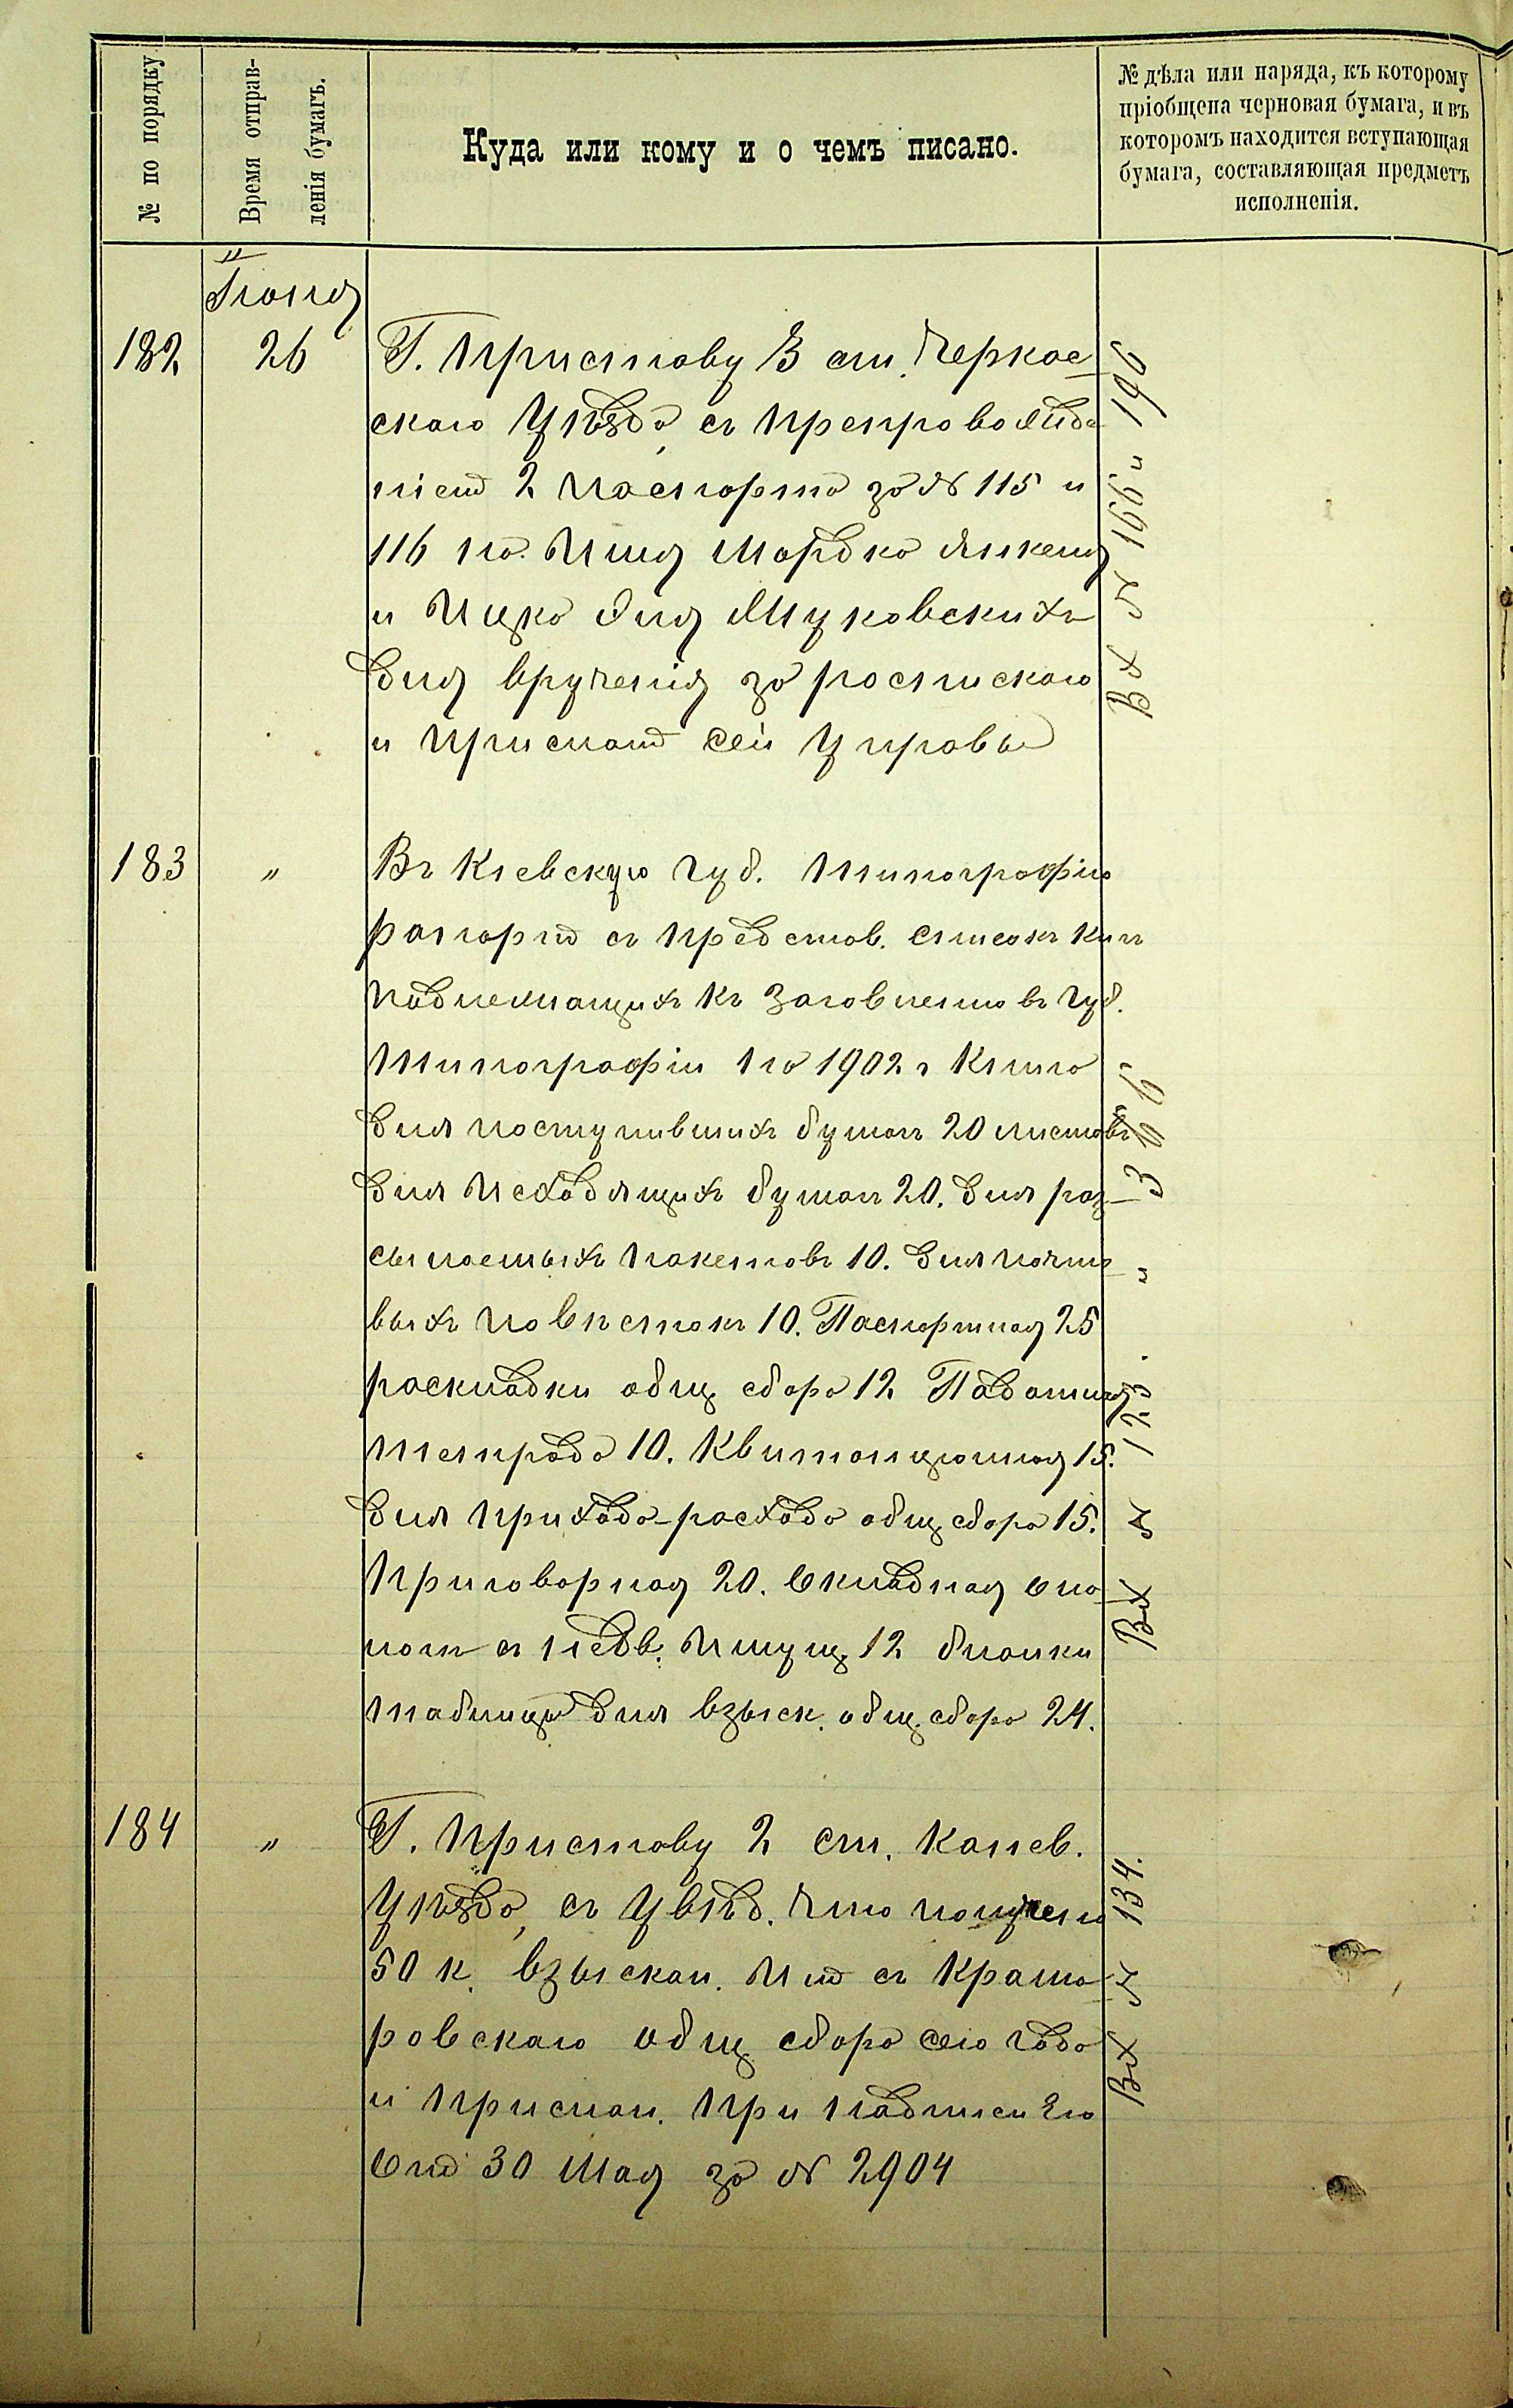 № по порядку
Время отправ-
ленія бумагъ.
Куда или кому и о чемъ писано.
№ дѣла или наряда, къ которому
пріобщена черновая бумага, и въ
которомъ находится вступающая
бумага, составляющая предметъ
исполненія.
Іюня
182 26 Г. Приставу 3 ст. Черкас
скаго уѣзда, съ препровожде
ніемъ 2 паспорта за № 115 и
116 на имя Мордко Янкеля
и Ицко Эля Муковскихъ
для врученія за роспискою
и присылкой сей управы
Вх № 166 и 196
183 „ Въ Кіевскую Губ. Типографію
рапортъ съ представ. списокъ книгъ
подлежащихъ къ заготовленію въ Губ.
Типографіи на 1902 г Книга
для поступившихъ бумагъ 20 листовъ
для исходящихъ бумагъ 20. для раз
сылаемыхъ пакетовъ 10. для почто
выхъ повѣстокъ 10. Паспортная 25
раскладки общ сбора 12 Податная
тетрадь 10. Квитанціонная 15.
для прихода-расхода общ сбора 15.
Приговорная 20. Окладная о на
логѣ съ недв. имущ. 12 бланки
таблицы для взыск. общ. сбора 24.
Вх № 123. и 366
184 „ Г. Приставу 2 ст. Канев.
уѣзда, съ увѣд. что получено
50 к. взыскан. имъ съ Крама
ровскаго общ сбора сего года
и прислан. при надписи его
отъ 30 Мая за № 2904
Вх № 134.